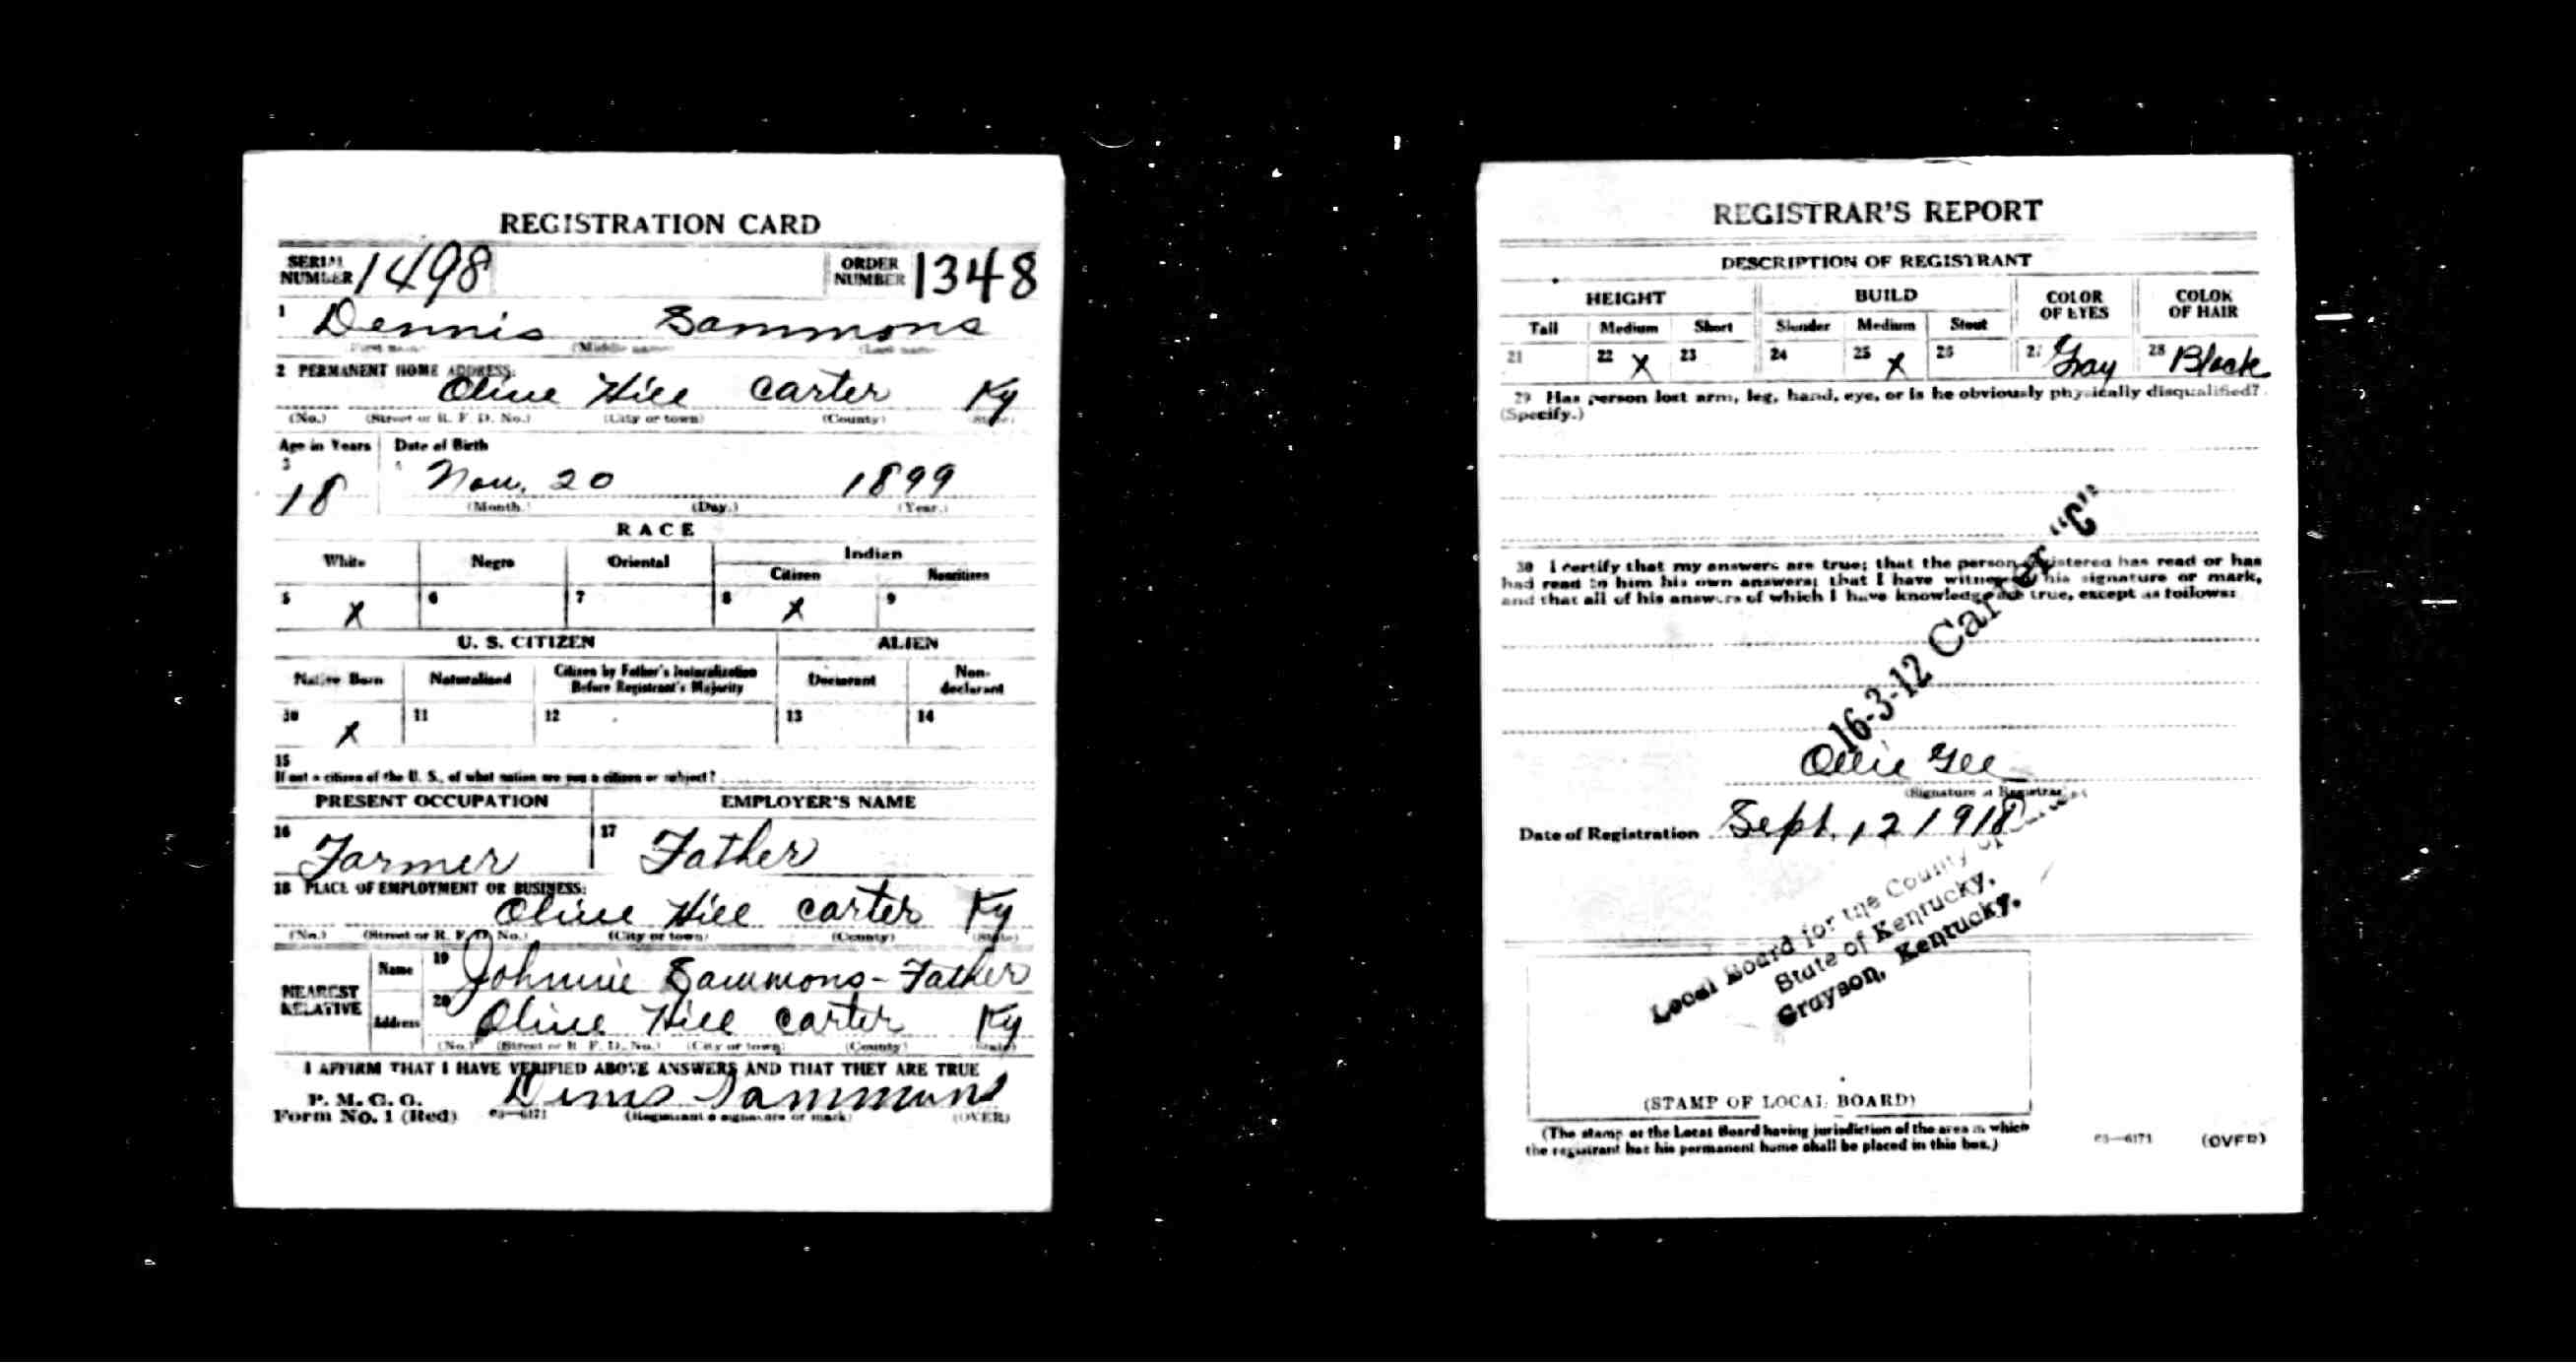 REGISTRATION CARD
SERIAL NUMBER 1498 ORDER NUMBER 1348
1 Dennis Sammons
(First name) (Middle name) (Last name)
2 PERMANENT HOME ADDRESS:
Olive Hill Carter Ky
(No.) (Street or R. F. D. No.) (City or town) (County) (State)
Age in Years Date of Birth
3 18 4 Nov. 20 1899
(Month.) (Day.) (Year.)
RACE
White Negro Oriental Indian
Citizen Noncitizen
5 X 6 7 8 X 9
U. S. CITIZEN ALIEN
Native Born Naturalized Citizen by Father's Naturalization Before Registrant's Majority Declarant Non-declarant
10 X 11 12 13 14
15
If not a citizen of the U. S., of what nation are you a citizen or subject?
PRESENT OCCUPATION EMPLOYER'S NAME
16 Farmer 17 Father
18 PLACE OF EMPLOYMENT OR BUSINESS:
Olive Hill Carter Ky
(No.) (Street or R. F. D. No.) (City or town) (County) (State)
NEAREST RELATIVE Name 19 Johnnie Sammons - Father
Address 20 Olive Hill Carter Ky
(No.) (Street or R. F. D. No.) (City or town) (County) (State)
I AFFIRM THAT I HAVE VERIFIED ABOVE ANSWERS AND THAT THEY ARE TRUE
P. M. G. O.
Form No. 1 (Red) 03—6171 Dennis Sammons
(Registrant's signature or mark) (OVER)
REGISTRAR'S REPORT
DESCRIPTION OF REGISTRANT
HEIGHT BUILD COLOR OF EYES COLOR OF HAIR
Tall Medium Short Slender Medium Stout
21 22 X 23 24 25 X 26 27 Gray 28 Black
29 Has person lost arm, leg, hand, eye, or is he obviously physically disqualified?
(Specify.)
30 I certify that my answers are true; that the person registered has read or has
had read to him his own answers; that I have witnessed his signature or mark,
and that all of his answers of which I have knowledge are true, except as follows:
16-3-12 Carter "C"
Ollie Gee
(Signature of Registrar)
Date of Registration Sept. 12 1918
Local Board for the County of
State of Kentucky,
Grayson, Kentucky.
(STAMP OF LOCAL BOARD)
(The stamp of the Local Board having jurisdiction of the area in which
the registrant has his permanent home shall be placed in this box.)
03—6171 (OVER)